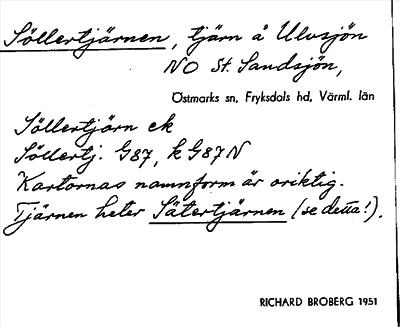 Söllertjärnen, tjärn å Ulvsjön
NO St. Sandsjön,
Östmarks sn, Fryksdals hd, Värml. län
Söllertjärn ek
Söllertj. G87, k G87N
Kartornas namnform är oriktig.
Tjärnen heter Sätertjärnen (se detta!).
RICHARD BROBERG 1951